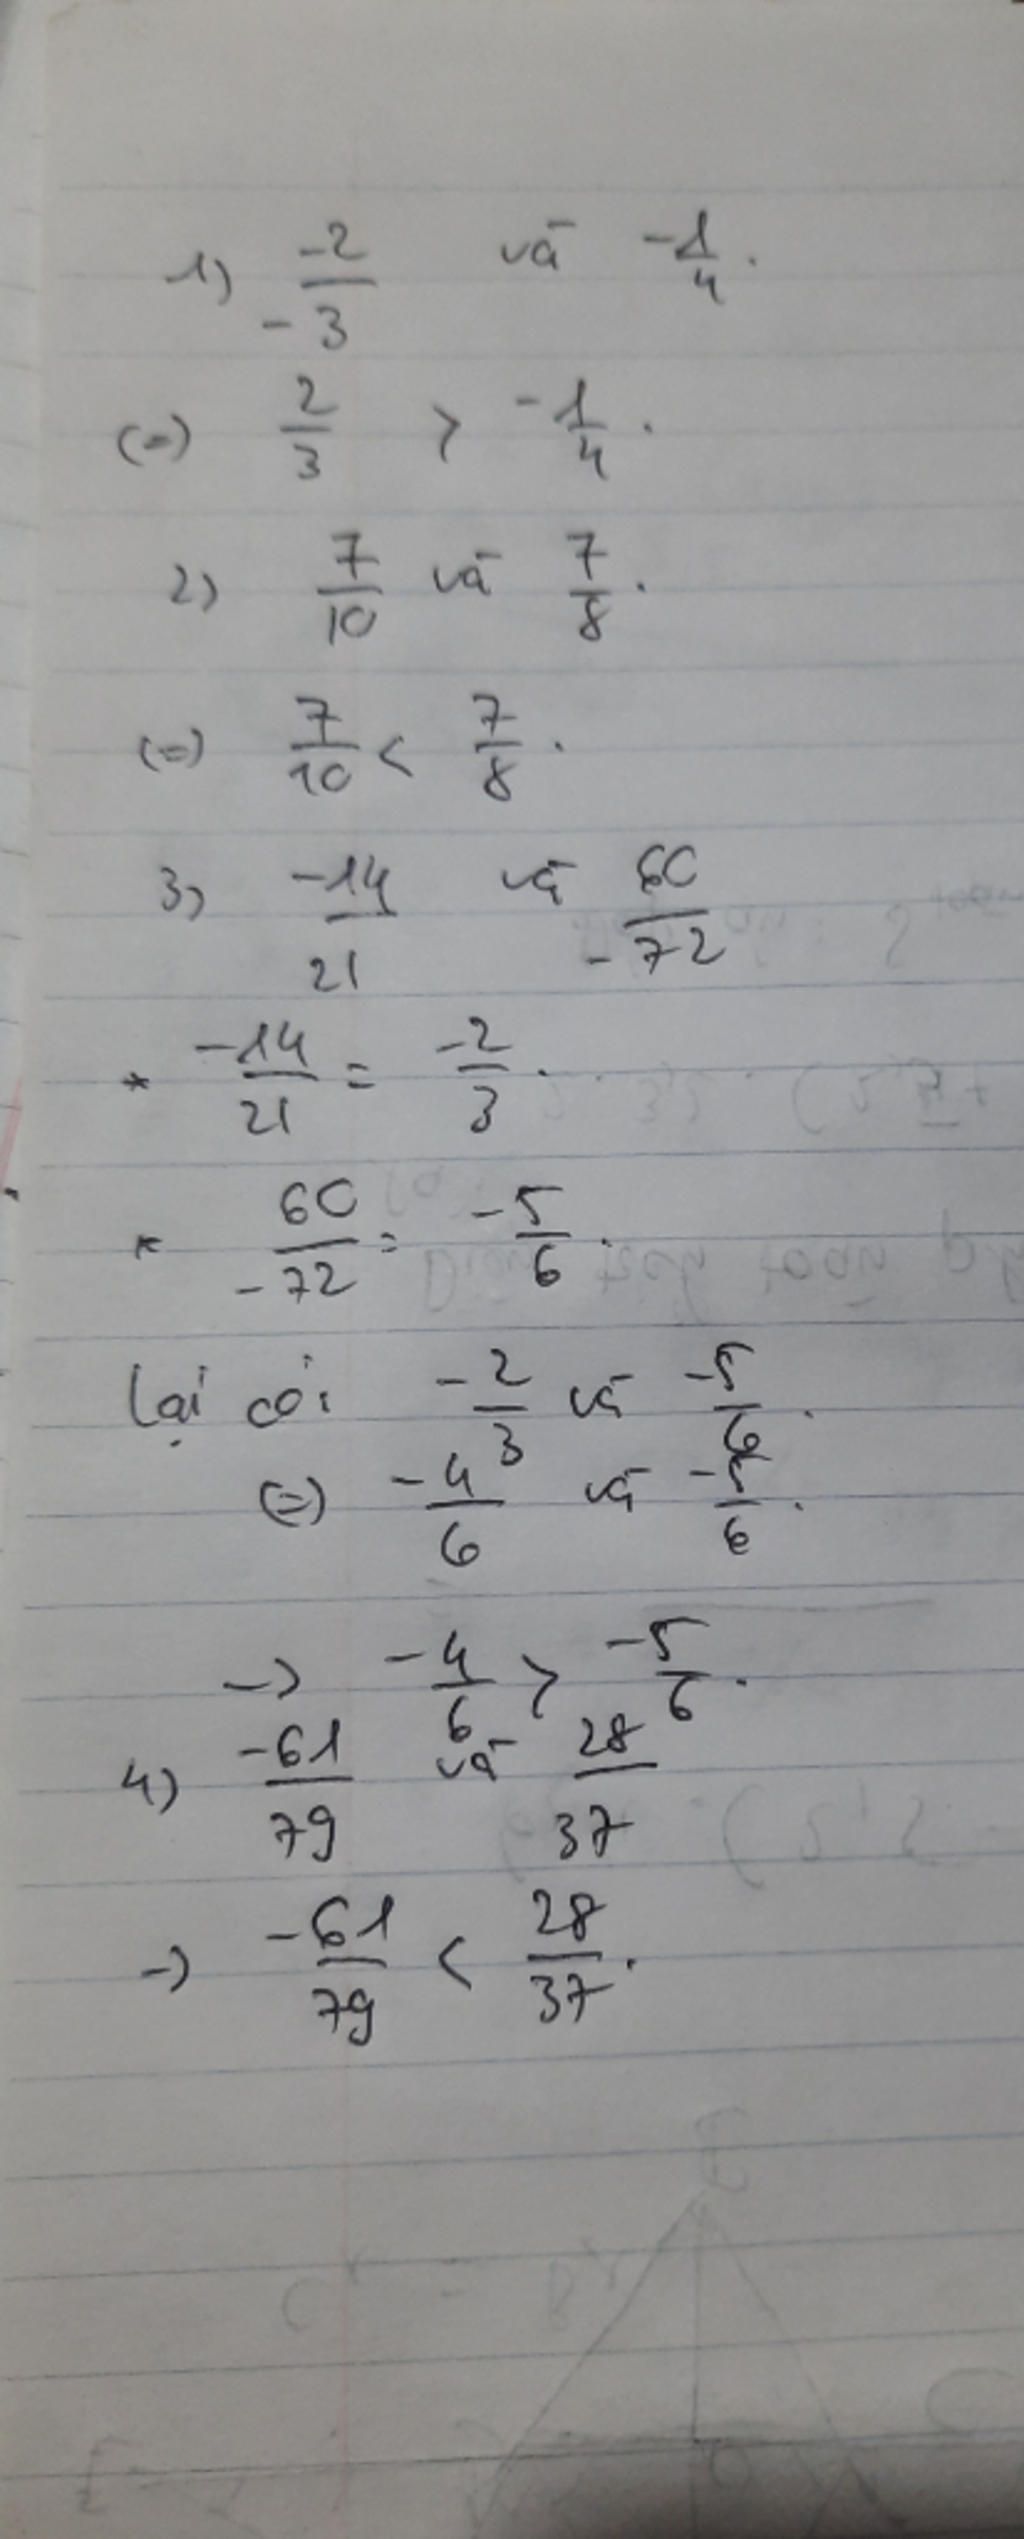 1) -2/-3 và -1/4.
(=) 2/3 > -1/4.
2) 7/10 và 7/8.
(=) 7/10 < 7/8.
3) -14/21 và 60/-72
* -14/21 = -2/3.
* 60/-72 = -5/6.
Lại có: -2/3 và -5/6.
(=) -4/6 và -5/6.
-> -4/6 > -5/6.
4) -61/79 và 28/37
-> -61/79 < 28/37.